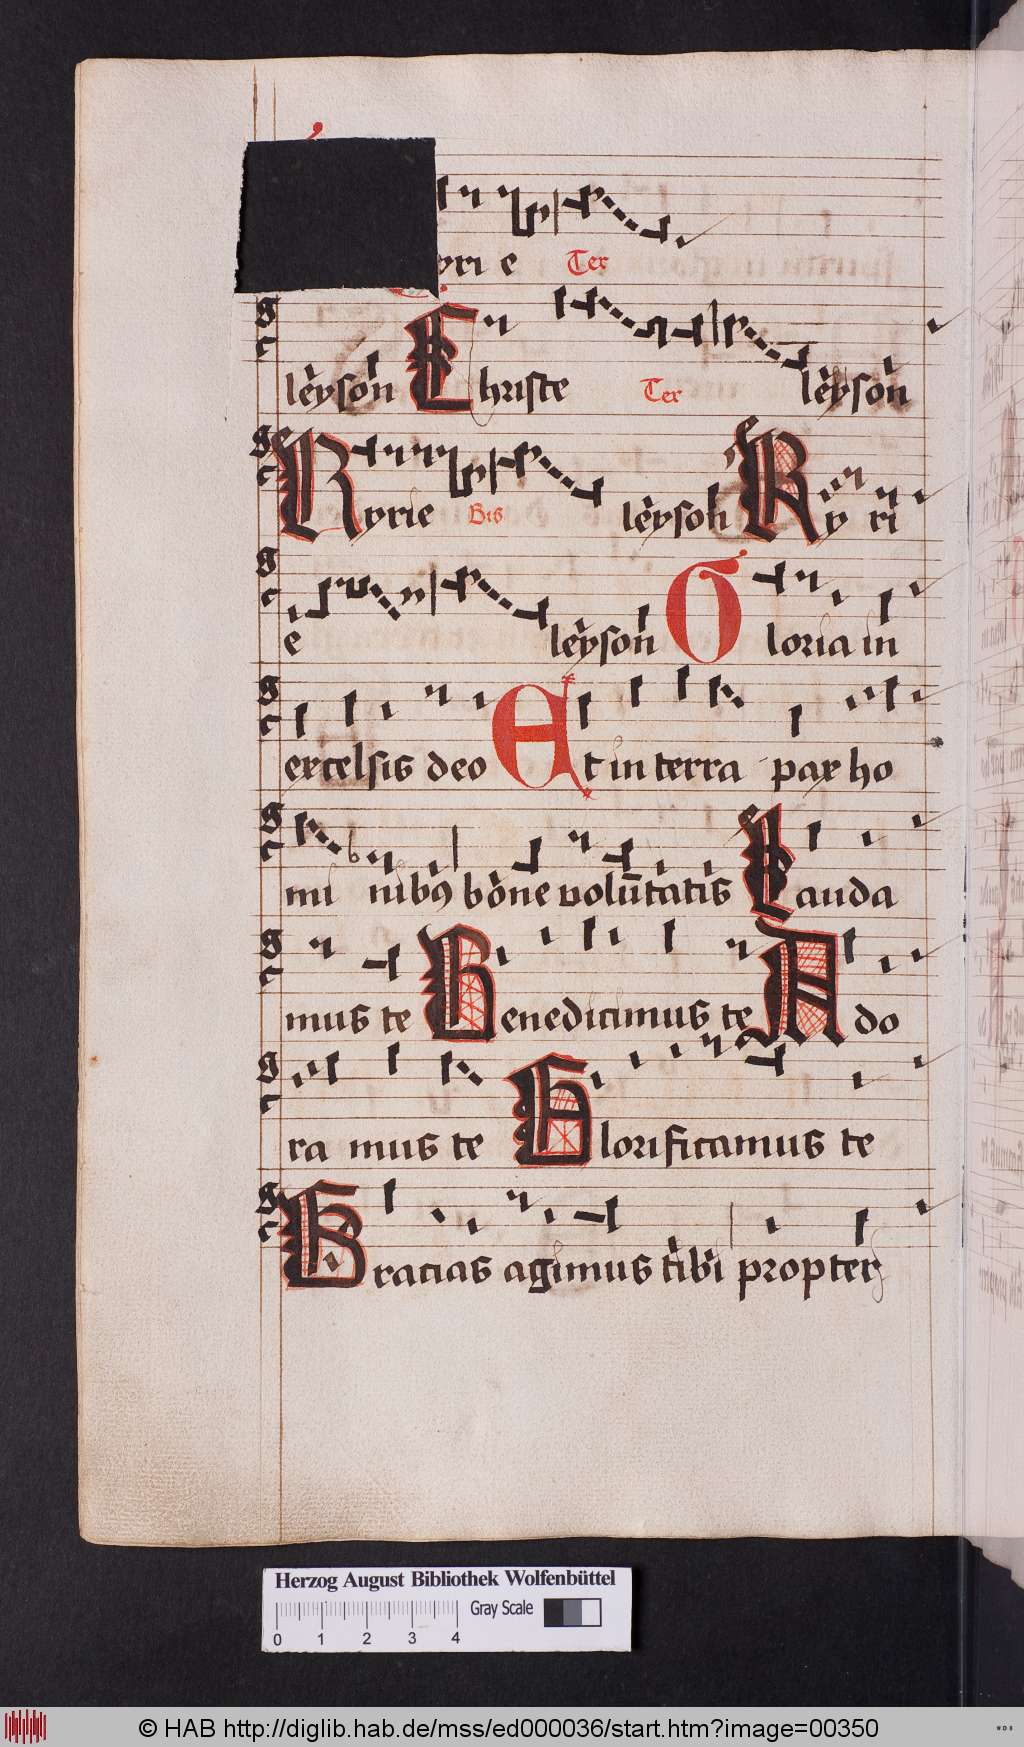 yri e Ter
leyson Christe Ter leyson
Kyrie Bis leyson Kyri
e leyson Gloria in
excelsis deo Et in terra pax ho
mi nibꝰ bone volūtatis Lauda
mus te Benedicimus te Ado
ra mus te Glorificamus te
Gracias agimus tibi propter
Herzog August Bibliothek Wolfenbüttel
Gray Scale
0 1 2 3 4
© HAB http://diglib.hab.de/mss/ed000036/start.htm?image=00350